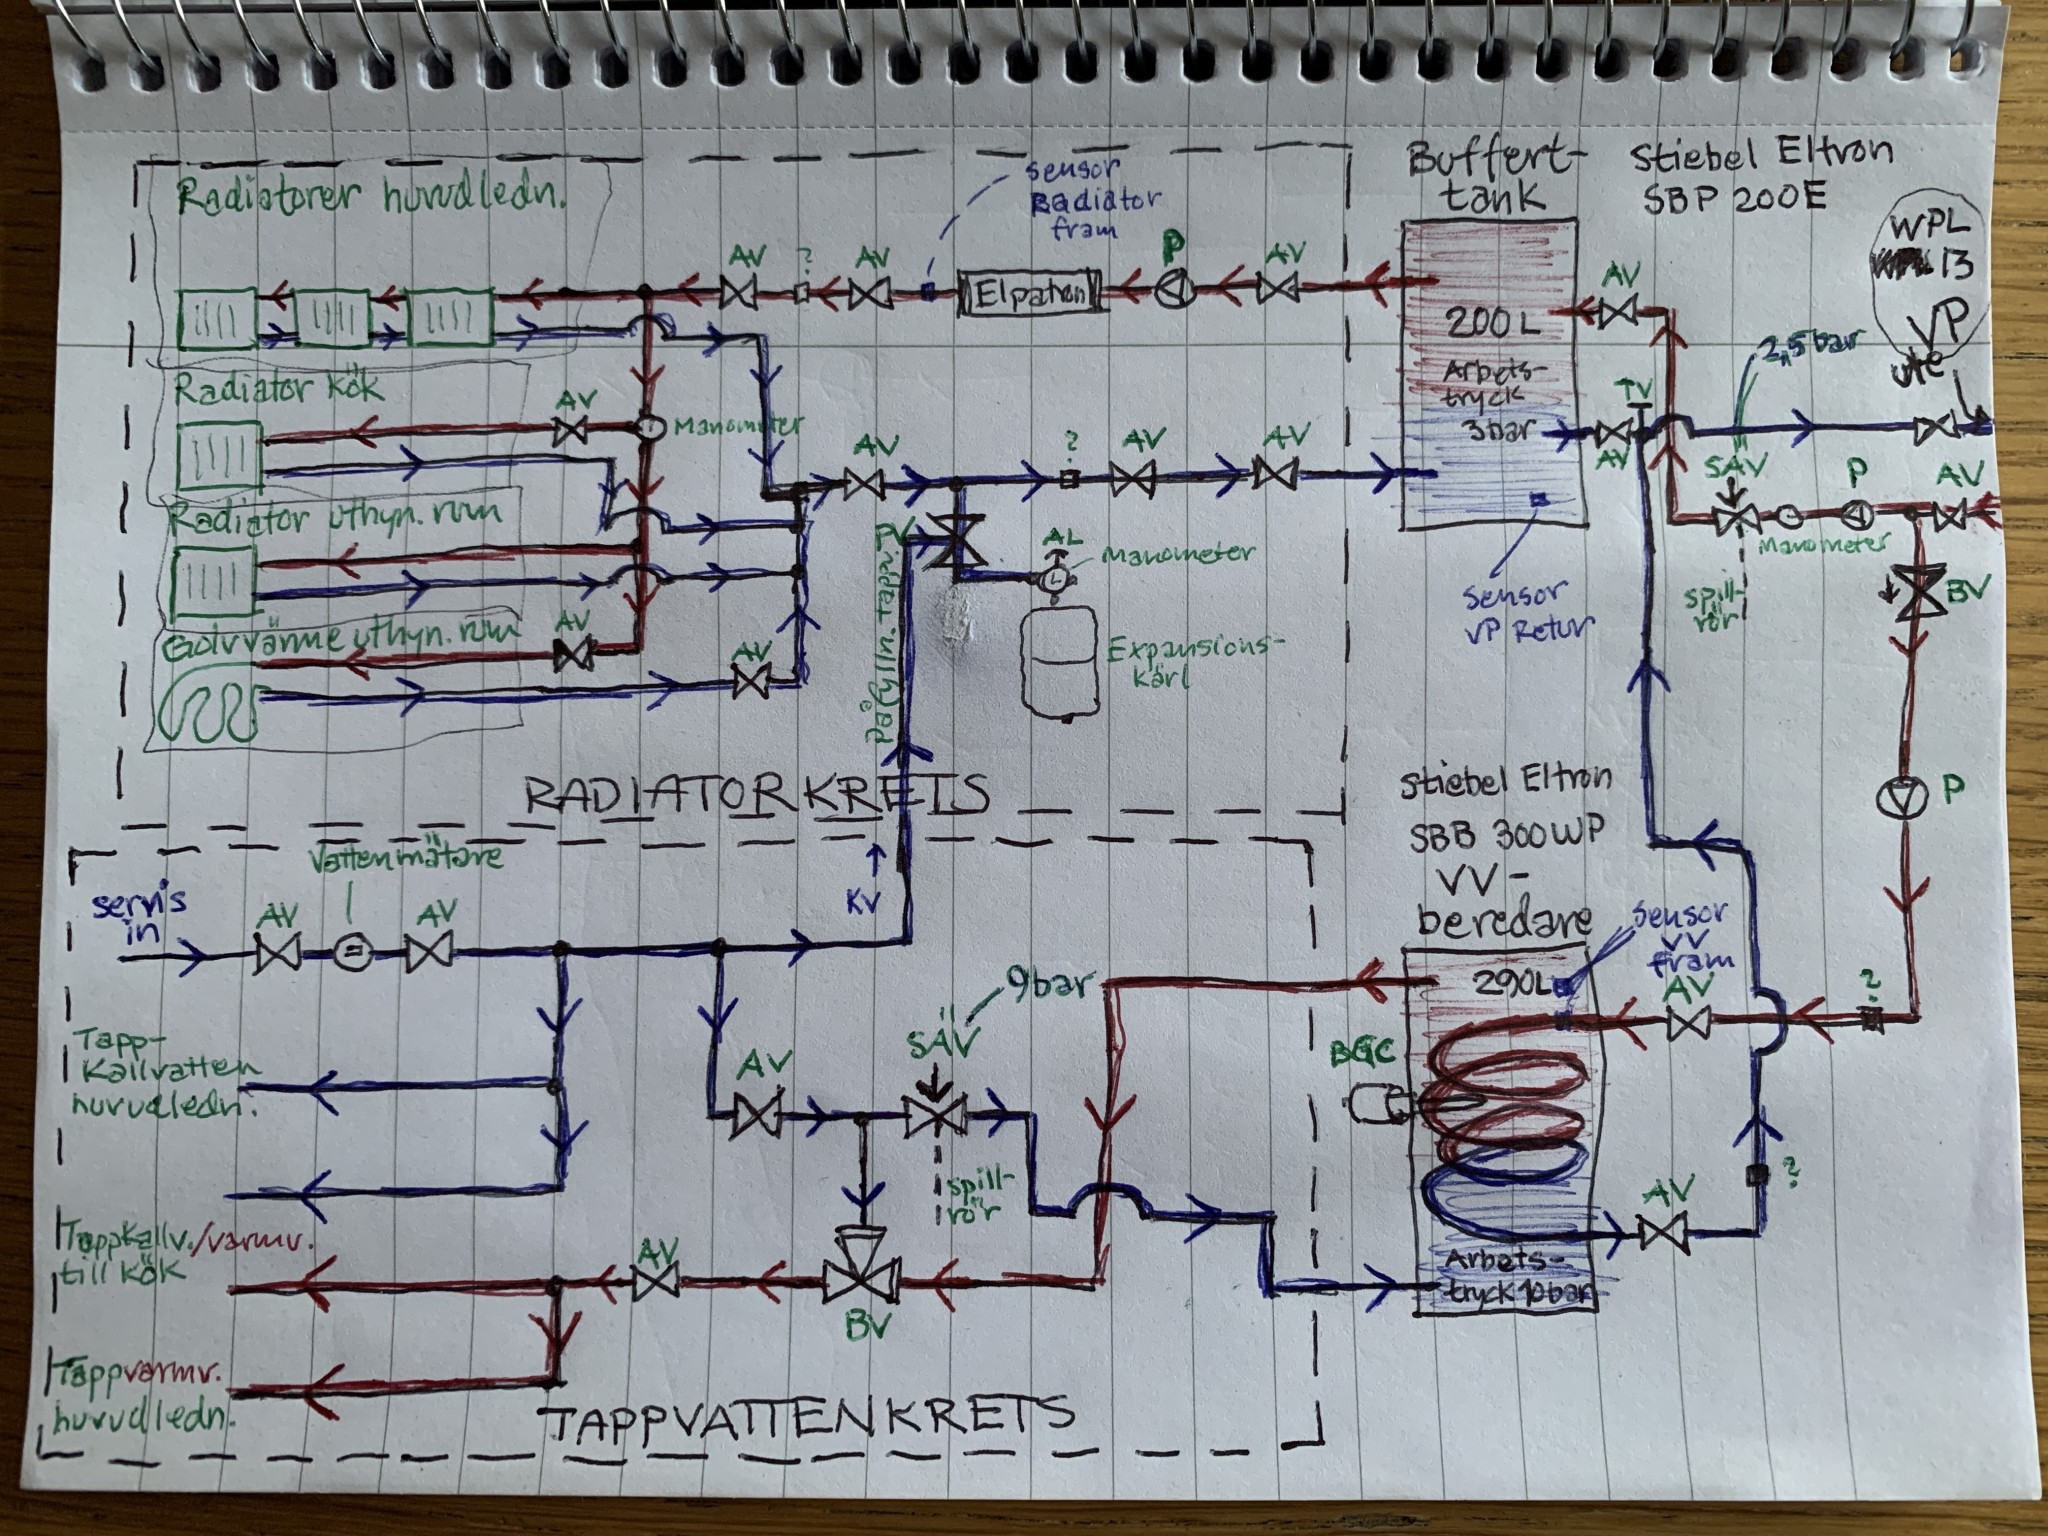 Radiatorer huvudledn.
sensor
Radiator
fram
Buffert-
tank
Stiebel Eltron
SBP 200E
WPL
13
VP
ute
AV
?
AV
Elpatron
P
AV
200L
Arbets-
tryck
3bar
AV
2,5bar
TV
AV
Radiator kök
AV
Manometer
AV
?
AV
AV
SÄV
P
AV
Manometer
spill-
rör
BV
Radiator uthyn. rum
AL
Manometer
Sensor
VP Retur
Golvvärme uthyn. rum
AV
AV
Påfylln.
Expansions-
kärl
RADIATORKRETS
P
Stiebel Eltron
SBB 300WP
VV-
beredare
Vattenmätare
servis
in
AV
AV
KV
290L
Sensor
VV
fram
AV
?
9bar
SÄV
AV
BGC
Tapp-
Kallvatten
huvudledn.
spill-
rör
AV
?
Tappkallv./varmv.
till kök
AV
BV
Arbets-
tryck 10bar
Tappvarmv.
huvudledn.
TAPPVATTENKRETS